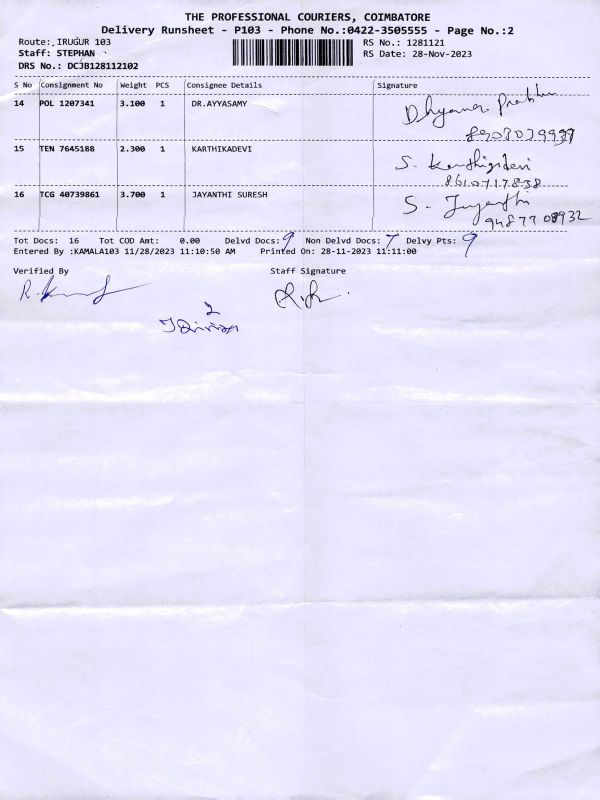 THE PROFESSIONAL COURIERS, COIMBATORE
Delivery Runsheet - P103 - Phone No.:0422-3505555 - Page No.:2
Route: IRUGUR 103 RS No.: 1281121
Staff: STEPHAN RS Date: 28-Nov-2023
DRS No.: DCJB128112102
S No Consignment No Weight PCS Consignee Details Signature
14 POL 1207341 3.100 1 DR.AYYASAMY
15 TEN 7645188 2.300 1 KARTHIKADEVI S. Karthigadevi
8610717838
16 TCG 40739861 3.700 1 JAYANTHI SURESH S. Jayanthi
9487708932
Tot Docs: 16 Tot COD Amt: 0.00 Delvd Docs: 9 Non Delvd Docs: 7 Delvy Pts: 9
Entered By :KAMALA103 11/28/2023 11:10:50 AM Printed On: 28-11-2023 11:11:00
Verified By Staff Signature
2